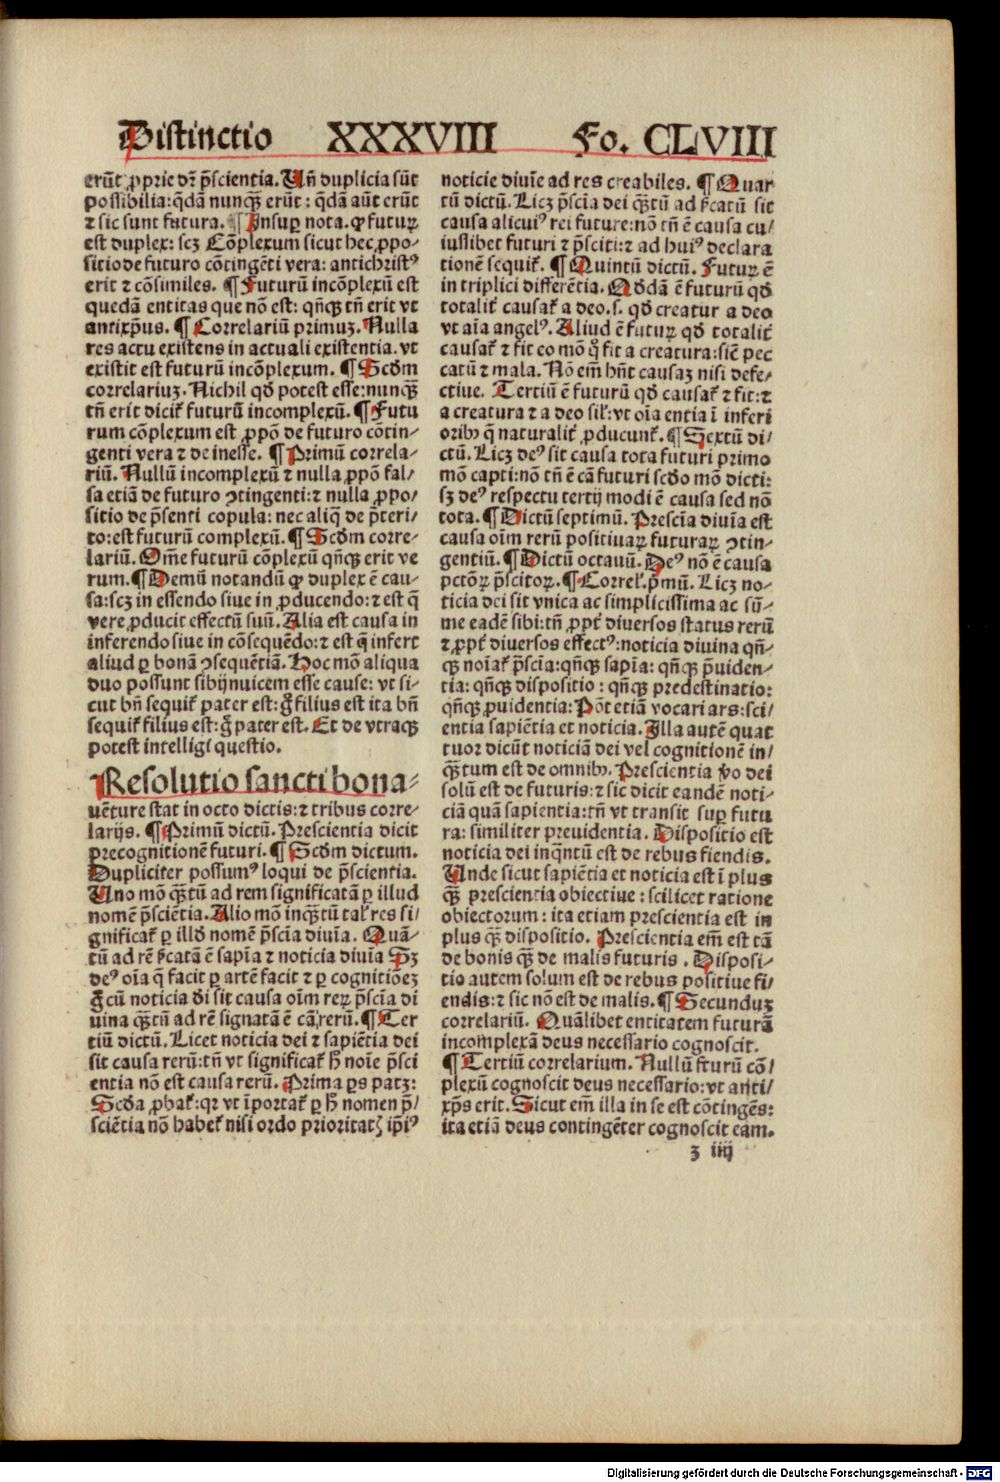 Distinctio XXXVIII Fo. CLVIII
erūt ꝓprie dr̄ p̄scientia. Uñ duplicia sūt
possibilia: q̄dā nunqꝫ erūt: q̄dā aūt erūt
⁊ sic sunt futura. ¶ Insuꝑ nota. ꝙ futuꝝ
est duplex: scꝫ Cōplexum sicut hec ꝓpo-
sitio de futuro cōtingēti vera: antichristꝰ
erit ⁊ cōsimiles. ¶ Futurū incōplexū est
quedā entitas que nō est: qñqꝫ tñ erit vt
antixp̄us. ¶ Correlariū primuꝫ. Nulla
res actu existens in actuali existentia. vt
existit est futurū incōplexum. ¶ Scdm
correlariuꝫ. Nichil qd̄ potest esse: nunqꝫ̄
tñ erit dicit̃ futurū incomplexū. ¶ Futu
rum cōplexum est ꝓpō de futuro cōtin-
genti vera ⁊ de inesse. ¶ Primū correla-
riū. Nullū incomplexū ⁊ nulla ꝓpō fal-
sa etiā de futuro ꝯtingenti: ⁊ nulla ꝓpo/
sitio de p̄senti copula: nec aliq̄ de p̄teri/
to: est futurū complexū. ¶ Scdm corre-
lariū. Om̄e futurū cōplexū qñqꝫ erit ve
rum. ¶ Demū notandū ꝙ duplex ē cau-
sa: scꝫ in essendo siue in ꝓducendo: ⁊ est q̄
vere ꝓducit effectū suū. Alia est causa in
inferendo siue in cōsequēdo: ⁊ est q̄ infert
aliud ꝑ bonā ꝯsequētiā. Hoc mō aliqua
duo possunt sibijnuicem esse cause: vt si-
cut bñ sequit̃ pater est: g̊ filius est ita bñ
sequit̃ filius est: g̊ pater est. Et de vtraqꝫ
potest intelligi questio.
Resolutio sancti bona-
uēture stat in octo dictis: ⁊ tribus corre-
larijs. ¶ Primū dictū. Prescientia dicit
precognitionē futuri. ¶ Scdm dictum.
Dupliciter possumꝰ loqui de p̄scientia.
Uno mō qꝫ̄tū ad rem significatā ꝑ illud
nomē p̄sciētia. Alio mō inqꝫ̄tū tal̃ res si/
gnificat̃ ꝑ illd̄ nomē p̄scīa diuīa. Quā-
tū ad rē p̄catā ē sapīa ⁊ noticia diuīa Sꝫ
deꝰ oīa q̄ facit ꝑ artē facit ⁊ ꝑ cognitiōeꝫ
g̊ cū noticia di sit causa oīm reꝝ p̄scīa di
uina qꝫ̄tū ad rē signatā ē cā rerū. ¶ Ter
tiū dictū. Licet noticia dei ⁊ sapiētia dei
sit causa rerū: tñ vt significat̃ h̄ noīe p̄sci
entia nō est causa rerū. Prima ꝑs patꝫ:
Scd̄a ꝓbat̃: qꝛ vt īportat̃ ꝑ h̄ nomen p̄/
sciētia nō habet̃ nisi ordo prioritatꝭ ip̄iꝰ
noticie diuīe ad res creabiles. ¶ Quar
tū dictū. Licꝫ p̄scīa dei qꝫ̄tū ad p̄catū sit
causa alicuiꝰ rei future: nō tñ ē causa cu/
iuslibet futuri ⁊ p̄sciti: ⁊ ad huiꝰ declara
tionē sequit̃. ¶ Quintū dictū. Futuꝝ ē
in triplici differētia. Qd̄dā ē futurū qd̄
totalit̃ causat̃ a deo. s. qd̄ creatur a deo
vt aīa angelꝰ. Aliud ē futuꝝ qd̄ totalit̃
causat̃ ⁊ fit eo mō q̊ fit a creatura: sic̄ pec
catū ⁊ mala. Nō em̄ hñt causaꝫ nisi defe/
ctiue. Tertiū ē futurū qd̄ causat̃ ⁊ fit: ⁊
a creatura ⁊ a deo sil̃: vt oīa entia ī inferi
oribꝰ q̄ naturalit̃ ꝓducunt̃. ¶ Sextū di/
ctū. Licꝫ deꝰ sit causa tota futuri primo
mō capti: nō tñ ē cā futuri scd̄o mō dicti:
sꝫ deꝰ respectu tertij modi ē causa sed nō
tota. ¶ Dictū septimū. Prescīa diuīa est
causa oīm rerū positiuaꝝ futuraꝝ ꝯtin-
gentiū. ¶ Dictū octauū. Deꝰ nō ē causa
pctōꝝ p̄scitoꝝ. ¶ Correl̃. p̄mū. Licꝫ no-
ticia dei sit vnica ac simplicissima ac sū-
me eadē sibi: tñ ꝓpt̃ diuersos status rerū
⁊ ꝓpt̃ diuersos effectꝰ: noticia diuina qñ-
qꝫ noīat̃ p̄scīa: qñqꝫ sapīa: qñqꝫ p̄uiden-
tia: qñqꝫ dispositio: qñqꝫ predestinatio:
qñqꝫ ꝓuidentia: Pōt etiā vocari ars: sci/
entia sapiētia et noticia. Illa autē quat
tuor dicūt noticiā dei vel cognitionē in/
qꝫ̄tum est de omnibꝰ. Prescientia v̄o dei
solū est de futuris: ⁊ sic dicit eandē noti-
ciā quā sapientia: tñ vt transit suꝑ futu
ra: similiter preuidentia. Dispositio est
noticia dei inq̄ntū est de rebus fiendis.
Unde sicut sapiētia et noticia est ī plus
qꝫ̄ prescientia obiectiue: scilicet ratione
obiectorum: ita etiam prescientia est in
plus qꝫ̄ dispositio. Prescientia em̄ est tā
de bonis qꝫ̄ de malis futuris. Disposi-
tio autem solum est de rebus positiue fi-
endis: ⁊ sic nō est de malis. ¶ Secunduꝫ
correlariū. Quālibet entitatem futurā
incomplexā deus necessario cognoscit.
¶ Tertiū correlarium. Nullū futurū cō/
plexū cognoscit deus necessario: vt anti/
xp̄s erit. Sicut em̄ illa in se est cōtingēs:
ita etiā deus contingēter cognoscit eam.
ꝫ iiij
Digitalisierung gefördert durch die Deutsche Forschungsgemeinschaft - DFG